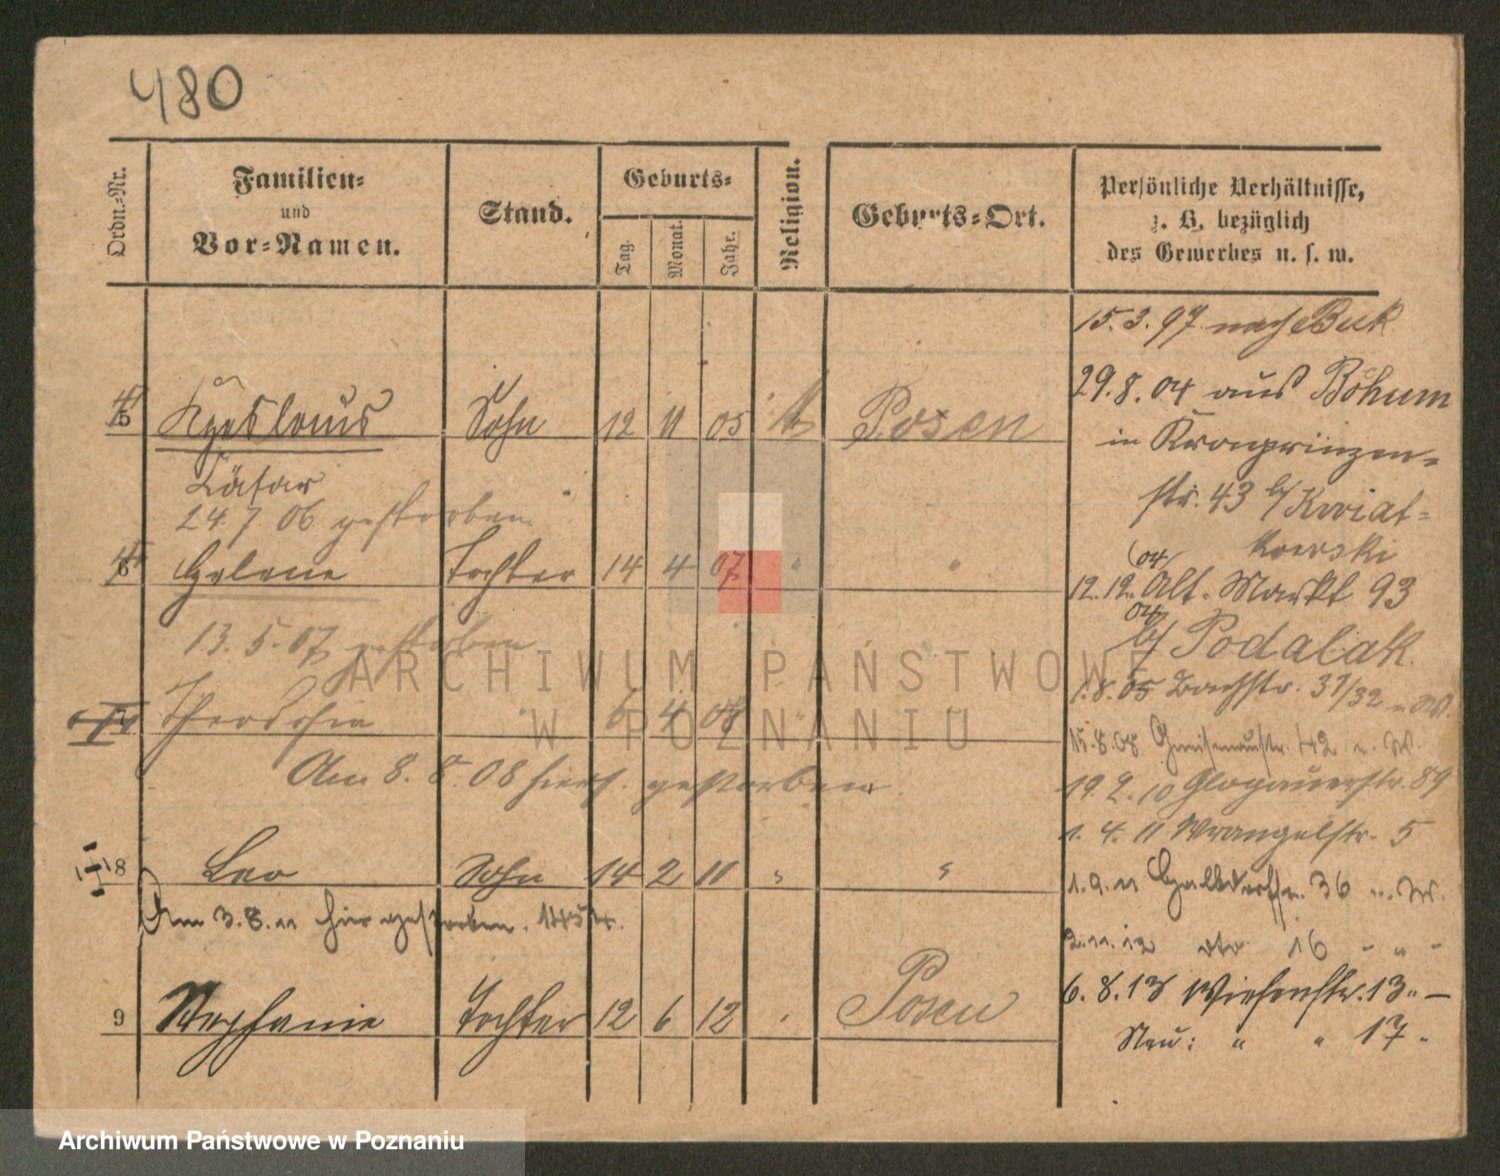 480
Ordn.-Nr.
Familien- und Vor-Namen.
Stand.
Geburts-
Tag. Monat. Jahr.
Religion.
Geburts-Ort.
Persönliche Verhältnisse, z. B. bezüglich des Gewerbes u. s. w.
15. 3. 97. nach Buk
29. 8. 04 aus Bohum
5 Sohn 12 11 05 Posen
in Kronprinzen-
str. 43 b/ Kwiat-
24. 7 06 gestorben
kowski
6 Helene Tochter 14 4 07 " "
04
12. 12. Alt. Markt 93
04
b/ Podalak.
13. 5. 07 gestorben
1. 8. 05 Bachstr. 31/32
7 Theodosia " 6 4 08 " "
15. 8. 08 Gneisenaustr. 42
Am 8. 8. 08 hiers. gestorben
19. 2. 10 Glogauerstr. 89
1. 4. 11 Wrangelstr. 5
8 Leo Sohn 14 2 11 " "
1. 9. 11 36
Am 3. 8. 11 hier gestorben.
2. 11. 12 16 " " "
9 Stephanie Tochter 12 6 12 " Posen
6. 8. 13 Wiesenstr. 13 " —
Neu: " " 17 "
ARCHIWUM PAŃSTWOWE
W POZNANIU
Archiwum Państwowe w Poznaniu